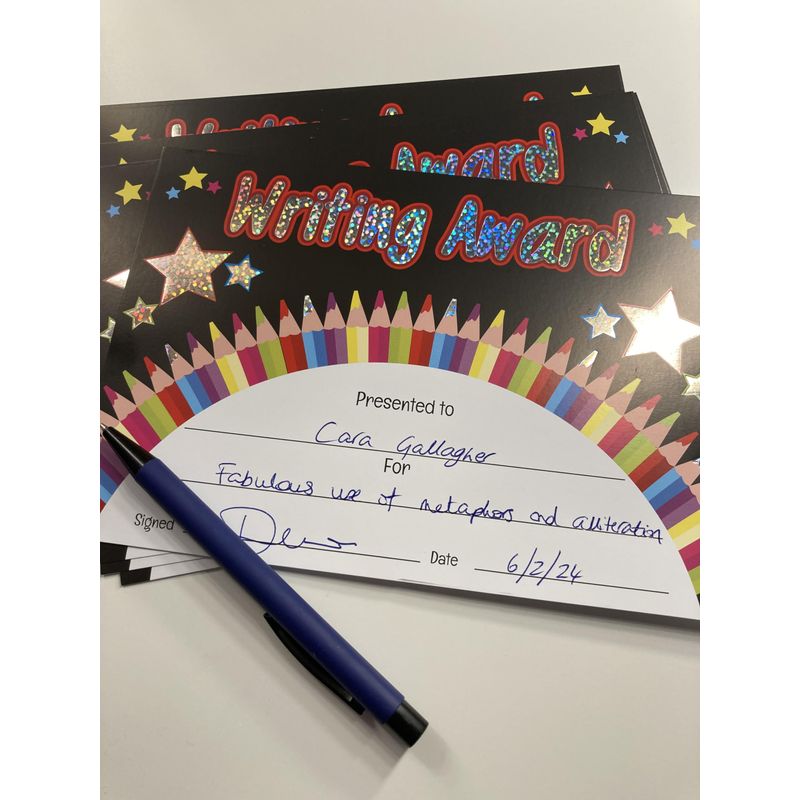 Award
Writing Award
Presented to
Cara Gallagher
For
Fabulous use of metaphors and alliteration
Signed
Date 6/2/24